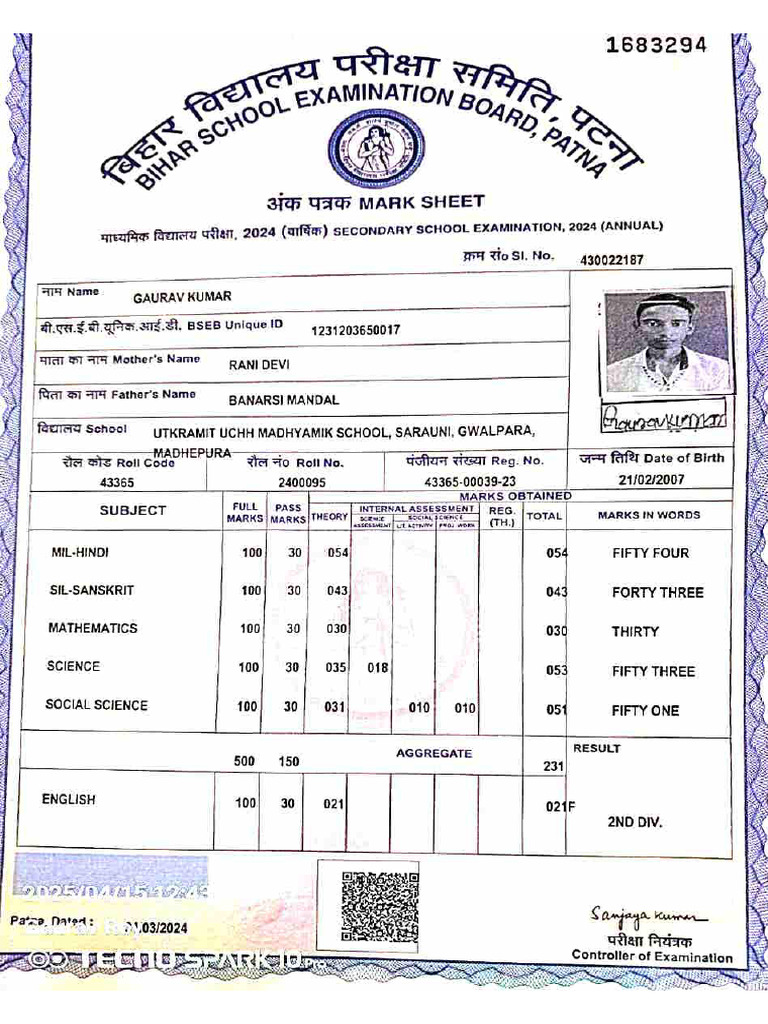 1683294
बिहार विद्यालय परीक्षा समिति, पटना
BIHAR SCHOOL EXAMINATION BOARD, PATNA
अंक पत्रक MARK SHEET
माध्यमिक विद्यालय परीक्षा, 2024 (वार्षिक) SECONDARY SCHOOL EXAMINATION, 2024 (ANNUAL)
क्रम सं० Sl. No. 430022187
नाम Name GAURAV KUMAR
बी.एस.ई.बी.यूनिक.आई.डी. BSEB Unique ID 1231203650017
माता का नाम Mother's Name RANI DEVI
पिता का नाम Father's Name BANARSI MANDAL
Gauravkumar
विद्यालय School UTKRAMIT UCHH MADHYAMIK SCHOOL, SARAUNI, GWALPARA,
MADHEPURA
रौल कोड Roll Code रौल नं० Roll No. पंजीयन संख्या Reg. No. जन्म तिथि Date of Birth
43365 2400095 43365-00039-23 21/02/2007
MARKS OBTAINED
SUBJECT FULL MARKS PASS MARKS THEORY INTERNAL ASSESSMENT REG. (TH.) TOTAL MARKS IN WORDS
SCIENCE ASSESSMENT SOCIAL SCIENCE LIT. ACTIVITY PROJ. WORK
MIL-HINDI 100 30 054 054 FIFTY FOUR
SIL-SANSKRIT 100 30 043 043 FORTY THREE
MATHEMATICS 100 30 030 030 THIRTY
SCIENCE 100 30 035 018 053 FIFTY THREE
SOCIAL SCIENCE 100 30 031 010 010 051 FIFTY ONE
500 150 AGGREGATE 231 RESULT
ENGLISH 100 30 021 021F
2ND DIV.
2025/04/15 12:43
Patna, Dated : 31/03/2024
Sanjaya Kumar
परीक्षा नियंत्रक
Controller of Examination
TECNO SPARK 10 Pro